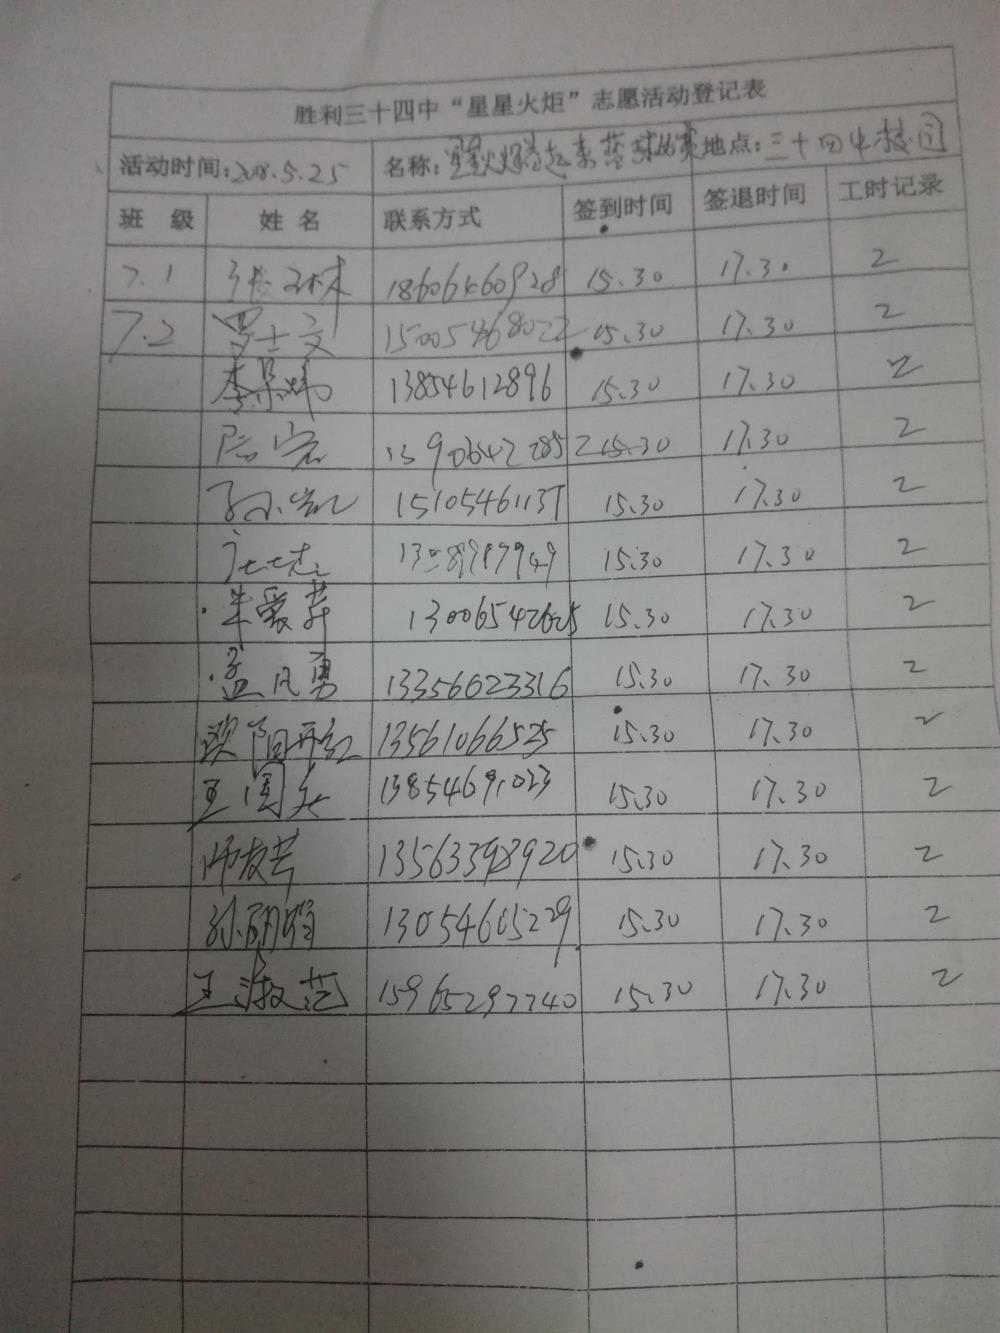 胜利三十四中“星星火炬”志愿活动登记表
活动时间:2018.5.25 名称: 篮球比赛 地点:三十四中校园
班 级 姓 名 联系方式 签到时间 签退时间 工时记录
7.1 18606460928 15.30 17.30 2
7.2 罗士文 15005468022 15.30 17.30 2
李景炜 13854612896 15.30 17.30 2
15.30 17.30 2
15105461137 15.30 17.30 2
15.30 17.30 2
朱爱萍 13006542625 15.30 17.30 2
孟凡勇 13356623316 15.30 17.30 2
欧阳再红 13561066525 15.30 17.30 2
王国 13854691023 15.30 17.30 2
师友芹 13563398920 15.30 17.30 2
孙丽娟 13054605229 15.30 17.30 2
王淑范 15965297740 15.30 17.30 2